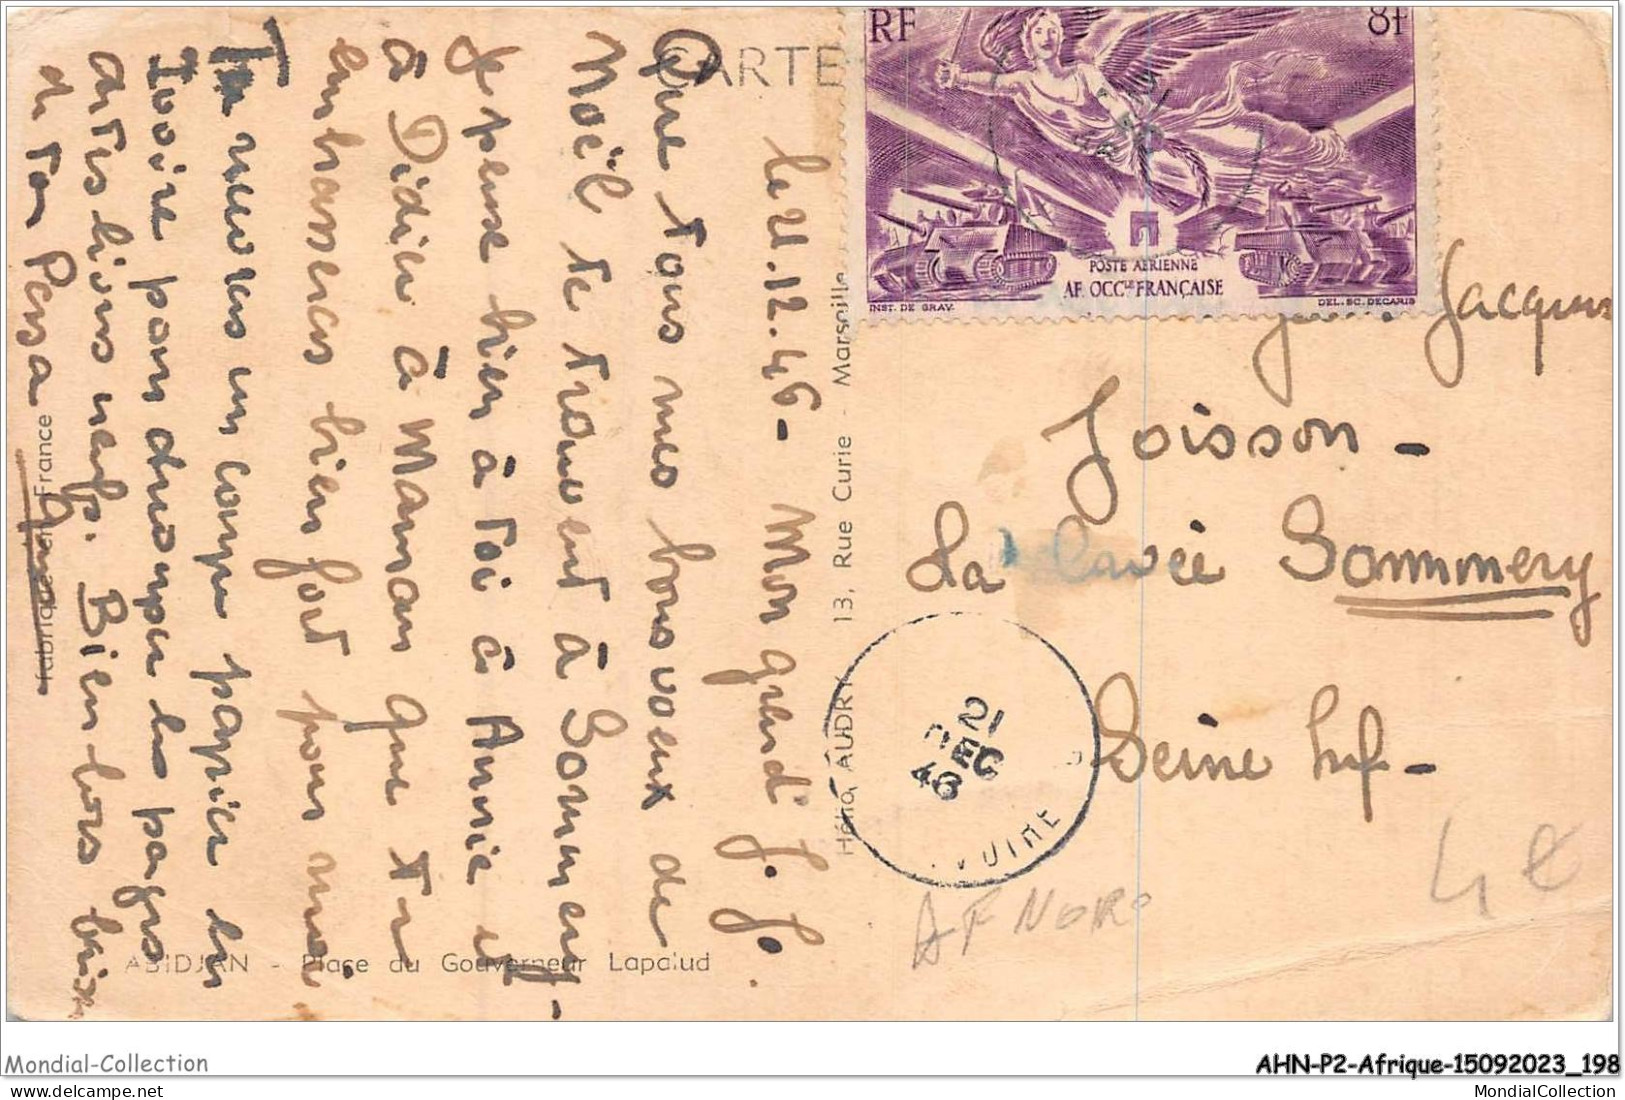 CARTE
le 21.12.46 - Mon grand J. J.
Que tous mes bons voeux de
Noël te trouvent à Sommery -
Je pense bien à toi à Annie et
à Didier à Maman que tu
embrasseras bien fort pour moi
Tu recevras un coupe papier en
Ivoire pour découper les pages
de tes livres neufs. Bien bons baisers
de ton Papa
fabriqué en France
ABIDJAN - Place du Gouverneur Lapalud
Hélio, AUDRY 13, Rue Curie - Marseille
RF 8f
POSTE AERIENNE
AF. OCCLE FRANÇAISE
INST. DE GRAV. DEL. SC. DECARIS
Jacques
Joisson -
La Cavée Sommery
Seine Inf -
21
DEC
46
AF NORD
4 €
Mondial-Collection
AHN-P2-Afrique-15092023_198
MondialCollection